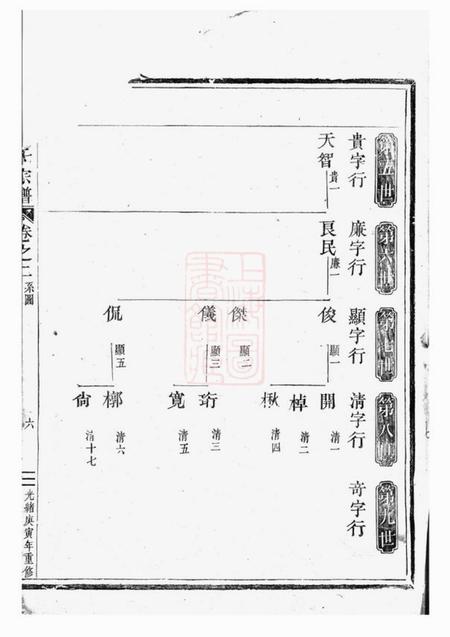 第五世
貴字行
天智
貴一
第六世
廉字行
良民
廉一
第七世
顯字行
俊
顯一
傑
顯二
儀
顯三
侃
顯五
第八世
清字行
開
清一
棹
清二
楸
清四
珩
清三
寬
清五
槨
清六
尙
清十七
第九世
奇字行
宗譜
卷之二
系圖
六
光緒庚寅年重修